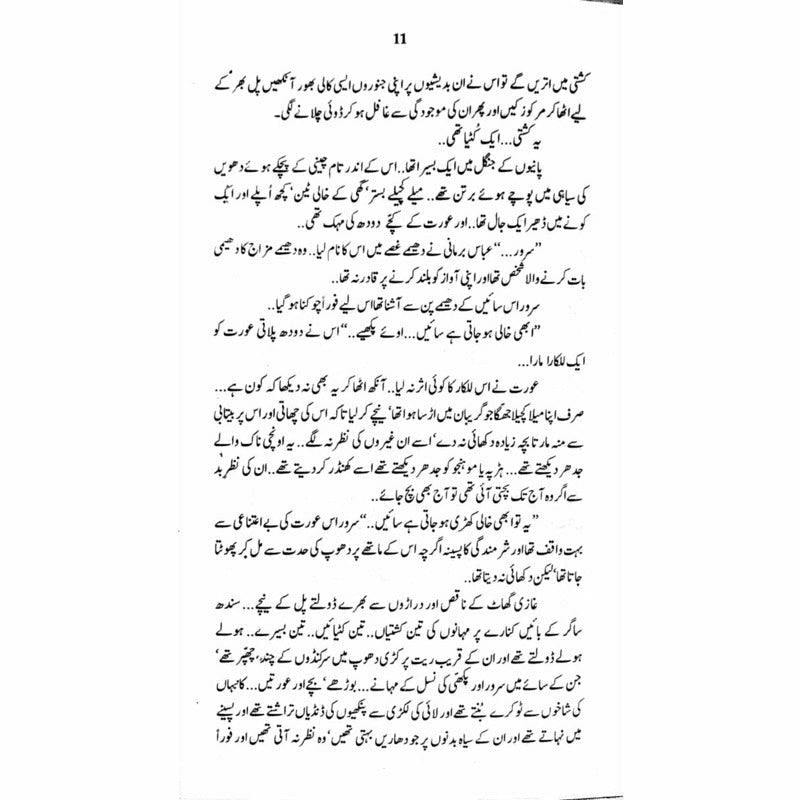 11
کشتی میں اتریں گے تو اس نے ان بدیشیوں پر اپنی جنوروں ایسی کالی بھور آنکھیں پل بھر کے
لیے اٹھا کر مرکوز کیں اور پھر ان کی موجودگی سے غافل ہو کر ڈوئی چلانے لگی۔
یہ کشتی... ایک کُٹیا تھی..
پانیوں کے جنگل میں ایک بسیرا تھا.. اس کے اندر تام چینی کے پچکے ہوئے دھویں
کی سیاہی میں پوچے ہوئے برتن تھے.. میلے کچیلے بستر، گھی کے خالی ٹین، کچھ اُپلے اور ایک
کونے میں ڈھیر ایک جال تھا.. اور عورت کے کچے دودھ کی مہک تھی..
”سرور...“ عباس برمانی نے دھیمے غصے میں اس کا نام لیا.. وہ دھیمے مزاج کا دھیمی
بات کرنے والا شخص تھا اور اپنی آواز کو بلند کرنے پر قادر نہ تھا..
سرور اس سائیں کے دھیمے پن سے آشنا تھا اس لیے فوراً چوکنا ہو گیا..
”ابھی خالی ہو جاتی ہے سائیں... اوئے پکھیے..“ اس نے دودھ پلاتی عورت کو
ایک للکارا مارا...
عورت نے اس للکار کا کوئی اثر نہ لیا.. آنکھ اٹھا کر یہ بھی نہ دیکھا کہ کون ہے...
صرف اپنا میلا کچیلا جھگا جو گریبان میں اڑسا ہوا تھا، نیچے کر لیا تاکہ اس کی چھاتی اور اس پر بیتابی
سے منہ مارتا بچہ زیادہ دکھائی نہ دے، اسے ان غیروں کی نظر نہ لگے.. یہ اونچی ناک والے
جدھر دیکھتے تھے... ہڑپہ یا موہنجو کو جدھر دیکھتے تھے اسے کھنڈر کر دیتے تھے.. ان کی نظرِ بد
سے اگر وہ آج تک بچتی آئی تھی تو آج بھی بچ جائے..
”یہ تو ابھی خالی کھڑی ہو جاتی ہے سائیں..“ سرور اس عورت کی بے اعتناعی سے
بہت واقف تھا اور شرمندگی کا پسینہ اگرچہ اس کے ماتھے پر دھوپ کی حدت سے مل کر پھوٹتا
جاتا تھا، لیکن دکھائی نہ دیتا تھا..
غازی گھاٹ کے ناقص اور دراڑوں سے بھرے ڈولتے پل کے نیچے... سندھ
ساگر کے بائیں کنارے پر مہانوں کی تین کشتیاں.. تین کٹیائیں.. تین بسیرے.. ہولے
ہولے ڈولتے تھے اور ان کے قریب ریت پر کڑی دھوپ میں سرکنڈوں کے چند چھپر تھے،
جن کے سائے میں سرور اور پکھّی کی نسل کے مہانے... بوڑھے، بچے اور عورتیں... کانہاں
کی شاخوں سے ٹوکرے بُنتے تھے اور لائی کی لکڑی سے پنکھیوں کی ڈنڈیاں تراشتے تھے اور پسینے
میں نہاتے تھے اور ان کے سیاہ بدنوں پر جو دھاریں بہتی تھیں، وہ نظر نہ آتی تھیں اور فوراً